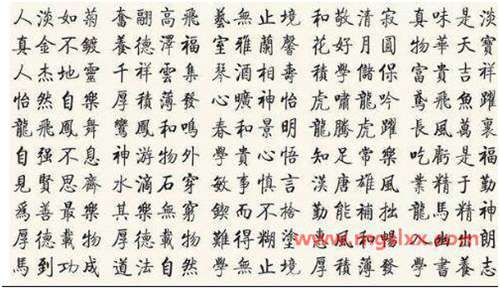 人淡如菊 奮翮高飛 藝無止境 和敬清寂 真味是淡
真金不鍍 養德澤福 室雅蘭馨 花好月圓 物華天寶
人杰地靈 千祥雲集 琴酒相壽 學儲 富貴吉祥
怡然自樂 厚積薄發 心曠神怡 虎嘯龍吟 鳶飛魚躍
龍飛鳳舞 鸞鳳和鳴 春和景明 龍騰虎躍 長風萬里
自强不息 神游物外 學貴心悟 知足常樂 吃虧是福
見賢思齊 水滴石穿 敏事慎言 漢唐雄風 業精于勤
為善最樂 其樂無窮 鍥而不捨 勤能補拙 龍馬精神
厚德載物 厚德載物 難得糊塗 風和暢 人朗
馬到功成 道法自然 學無止境 厚積薄發 學書養志